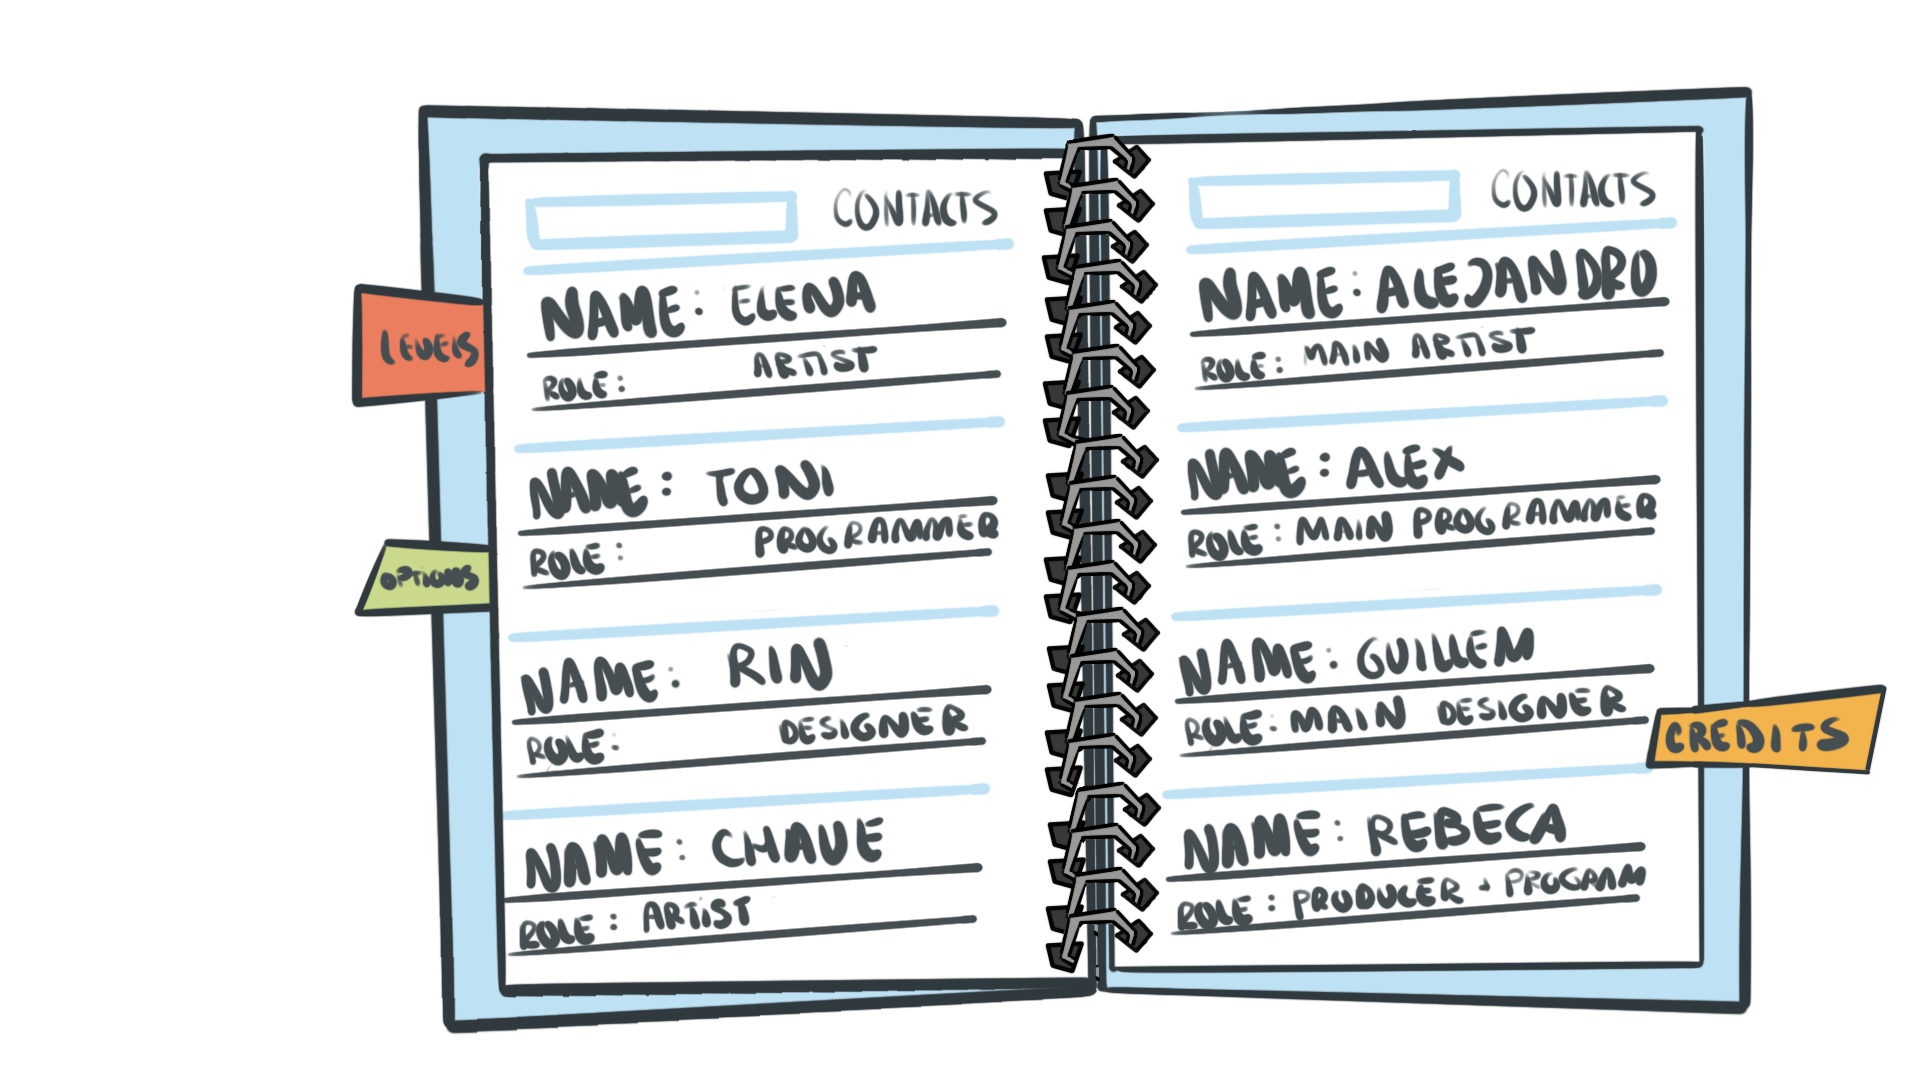 CONTACTS
NAME: ELENA
ROLE: ARTIST
NAME: TONI
ROLE: PROGRAMMER
NAME: RIN
ROLE: DESIGNER
NAME: CHAVE
ROLE: ARTIST
LEVELS
OPTIONS
CONTACTS
NAME: ALEJANDRO
ROLE: MAIN ARTIST
NAME: ALEX
ROLE: MAIN PROGRAMMER
NAME: GUILLEM
ROLE: MAIN DESIGNER
NAME: REBECA
ROLE: PRODUCER + PROGRAM
CREDITS